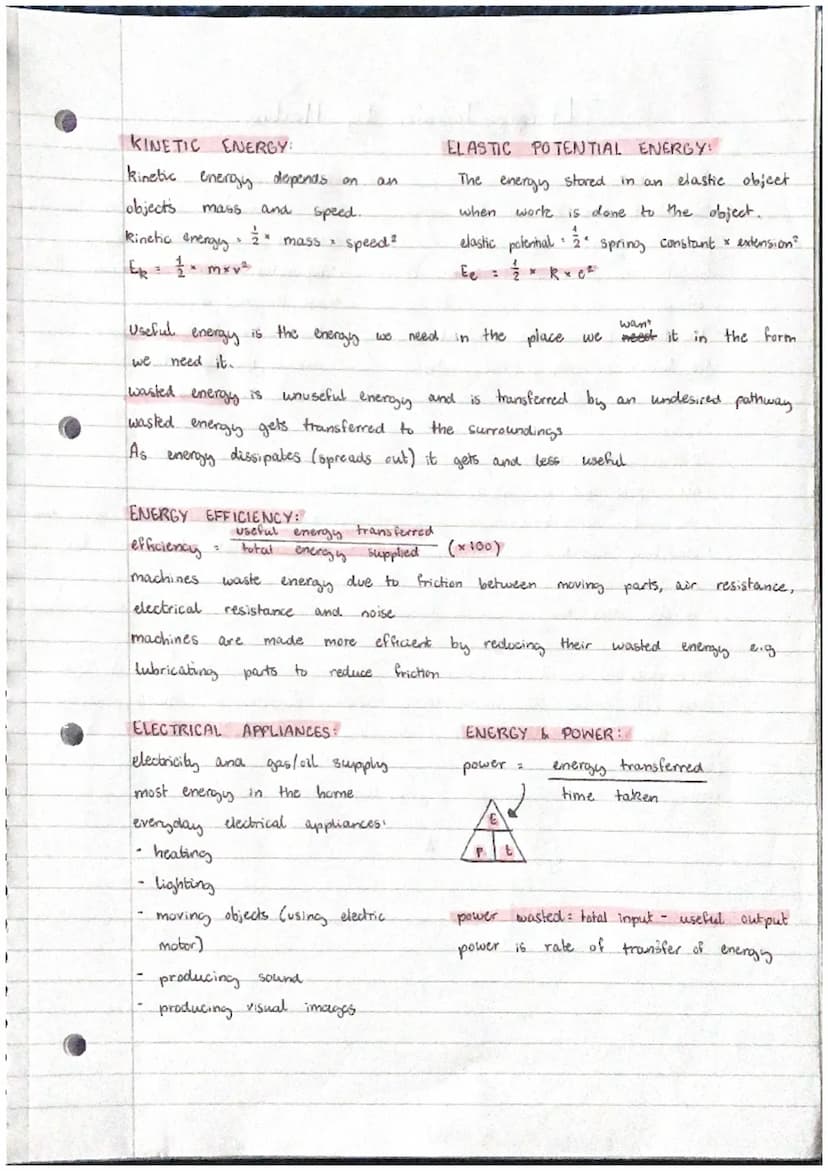 KINETIC ENERGY:
kinetic energy depends on an
objects mass and speed.
kinetic energy = 1/2 × mass × speed²
Ek = 1/2 × m×v²
ELASTIC POTENTIAL ENERGY:
The energy stored in an elastic object
when work is done to the object.
elastic potential = 1/2 × spring constant × extension²
Ee = 1/2 × k × e²
Useful energy is the energy we need in the place we want it in the form
we need it.
wasted energy is unuseful energy and is transferred by an undesired pathway
wasted energy gets transferred to the surroundings
As energy dissipates (spreads out) it gets and less useful
ENERGY EFFICIENCY:
efficiency = useful energy transferred / total energy supplied (×100)
machines waste energy due to friction between moving parts, air resistance,
electrical resistance and noise
machines are made more efficient by reducing their wasted energy e.g
lubricating parts to reduce friction
ELECTRICAL APPLIANCES:
electricity and gas/oil supply
most energy in the home
everyday electrical appliances:
- heating
- lighting
- moving objects (using electric
motor)
- producing sound
- producing visual images
ENERGY & POWER:
power = energy transferred / time taken
E
P t
power wasted = total input - useful output
power is rate of transfer of energy